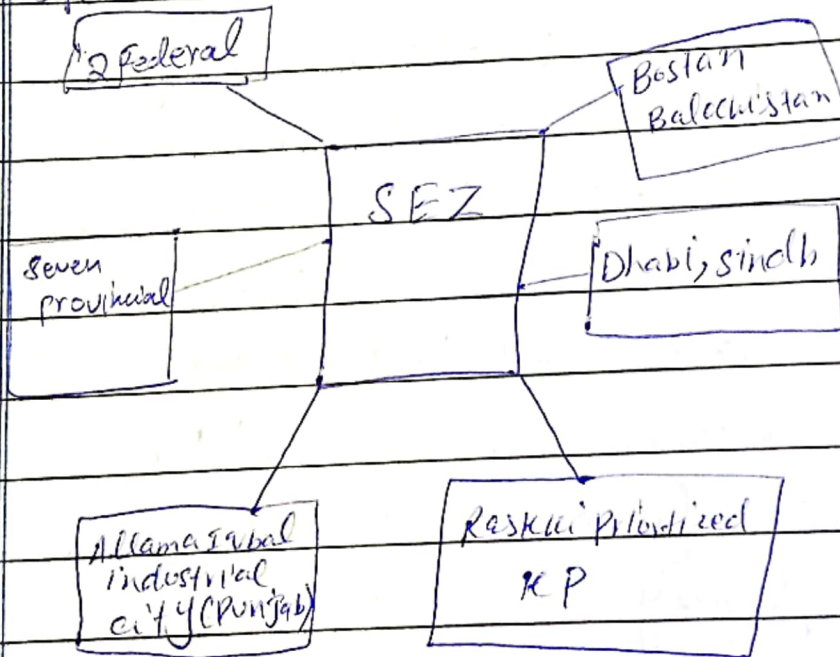 2 Federal
Bostan
Balochistan
SEZ
seven
provincial
Dhabi, sindh
Allama Iqbal
industrial
city (Punjab)
Raskkai Prioritized
KP